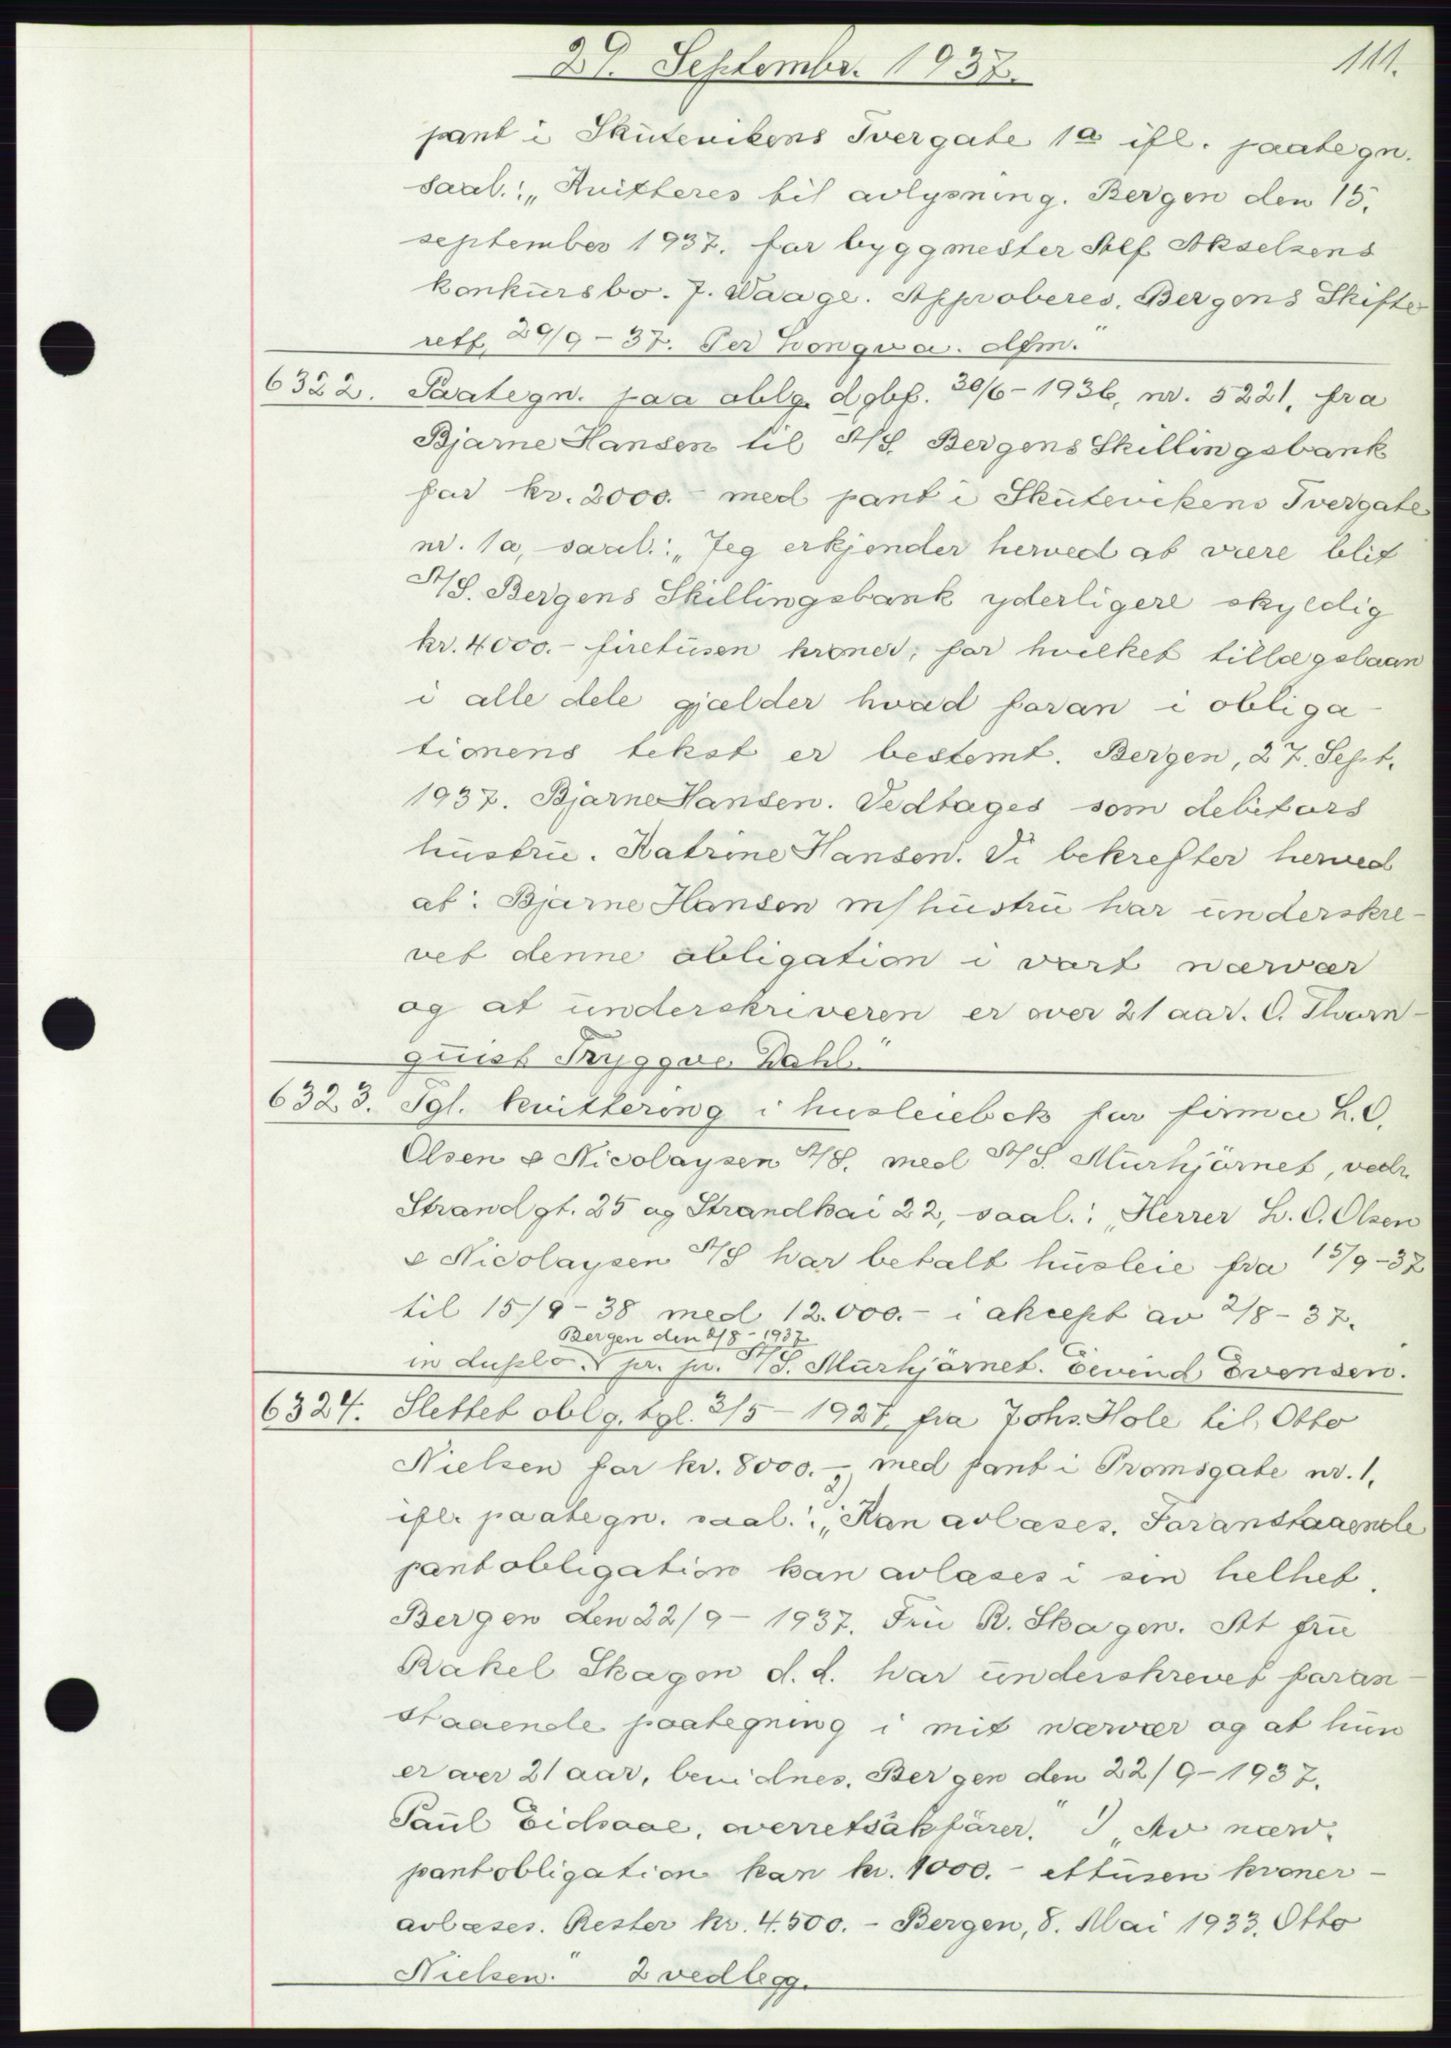 29. Septembr. 1937.
111.
pant i Skutevikens Tvergate 1a ifl. paategn.
saal.: „Kvitteres til avlysning. Bergen den 15.
september 1937. for byggmester Alf Akselsens
konkursbo. J. Waage. Approberes. Bergens Skifte-
rett, 29/9-37. Per Longva. dfm."
6322. Paategn. paa oblg. dgbf. 30/6-1936, nr. 5221, fra
Bjarne Hansen til A/S. Bergens Skillingsbank
for kr. 2000.- med pant i Skutevikens Tvergate
nr. 1a, saal.: „Jeg erkjender herved at være blit
A/S. Bergens Skillingsbank yderligere skyldig
kr. 4000.- firetusen kroner, for hvilket tillægslaan
i alle dele gjælder hvad foran i obliga-
tionens tekst er bestemt. Bergen, 27. Sept.
1937. Bjarne Hansen. Vedtages som debitors
hustru. Katrine Hansen. Vi bekrefter herved
at: Bjarne Hansen m/hustru har underskre-
vet denne obligation i vort nærvær
og at underskriveren er over 21 aar. O. Thorn-
quist Tryggve Dahl."
6323. Tgl. kvittering i husleiebok for firma L. O.
Olsen & Nicolaysen A/S. med A/S. Murhjörnet, vedr.
Strandgt. 25 og Strandkai 22, saal.: „Herrer L. O. Olsen
& Nicolaysen A/S har betalt husleie fra 15/9-37
til 15/9-38 med 12.000.- i aksept av 2/8-37.
Bergen den 2/8-1937
in duplo. pr. pr. A/S. Murhjörnet. Eivind Evensen.
6324. Slettet oblg. tgl. 3/5-1927, fra Johs. Hole til Otto
Nielsen for kr. 8000.-, med pant i Tromsgate nr. 1,
ifl. paategn. saal.: 2) „Kan avlæses. Foranstaaende
pantobligation kan avlæses i sin helhet.
Bergen den 22/9-1937. Fru R. Skagen. At fru
Rakel Skagen d. d. har underskrevet foran-
staaende paategning i mit nærvær og at hun
er over 21 aar, bevidnes. Bergen den 22/9-1937.
Paul Eidsaae, overretsakfärer." 1) „Av nærv.
pantobligation kan kr. 1000.- ettusen kroner -
avlæses. Rester kr. 4.500.- Bergen, 8. Mai 1933. Otto
Nielsen." 2 vedlegg.